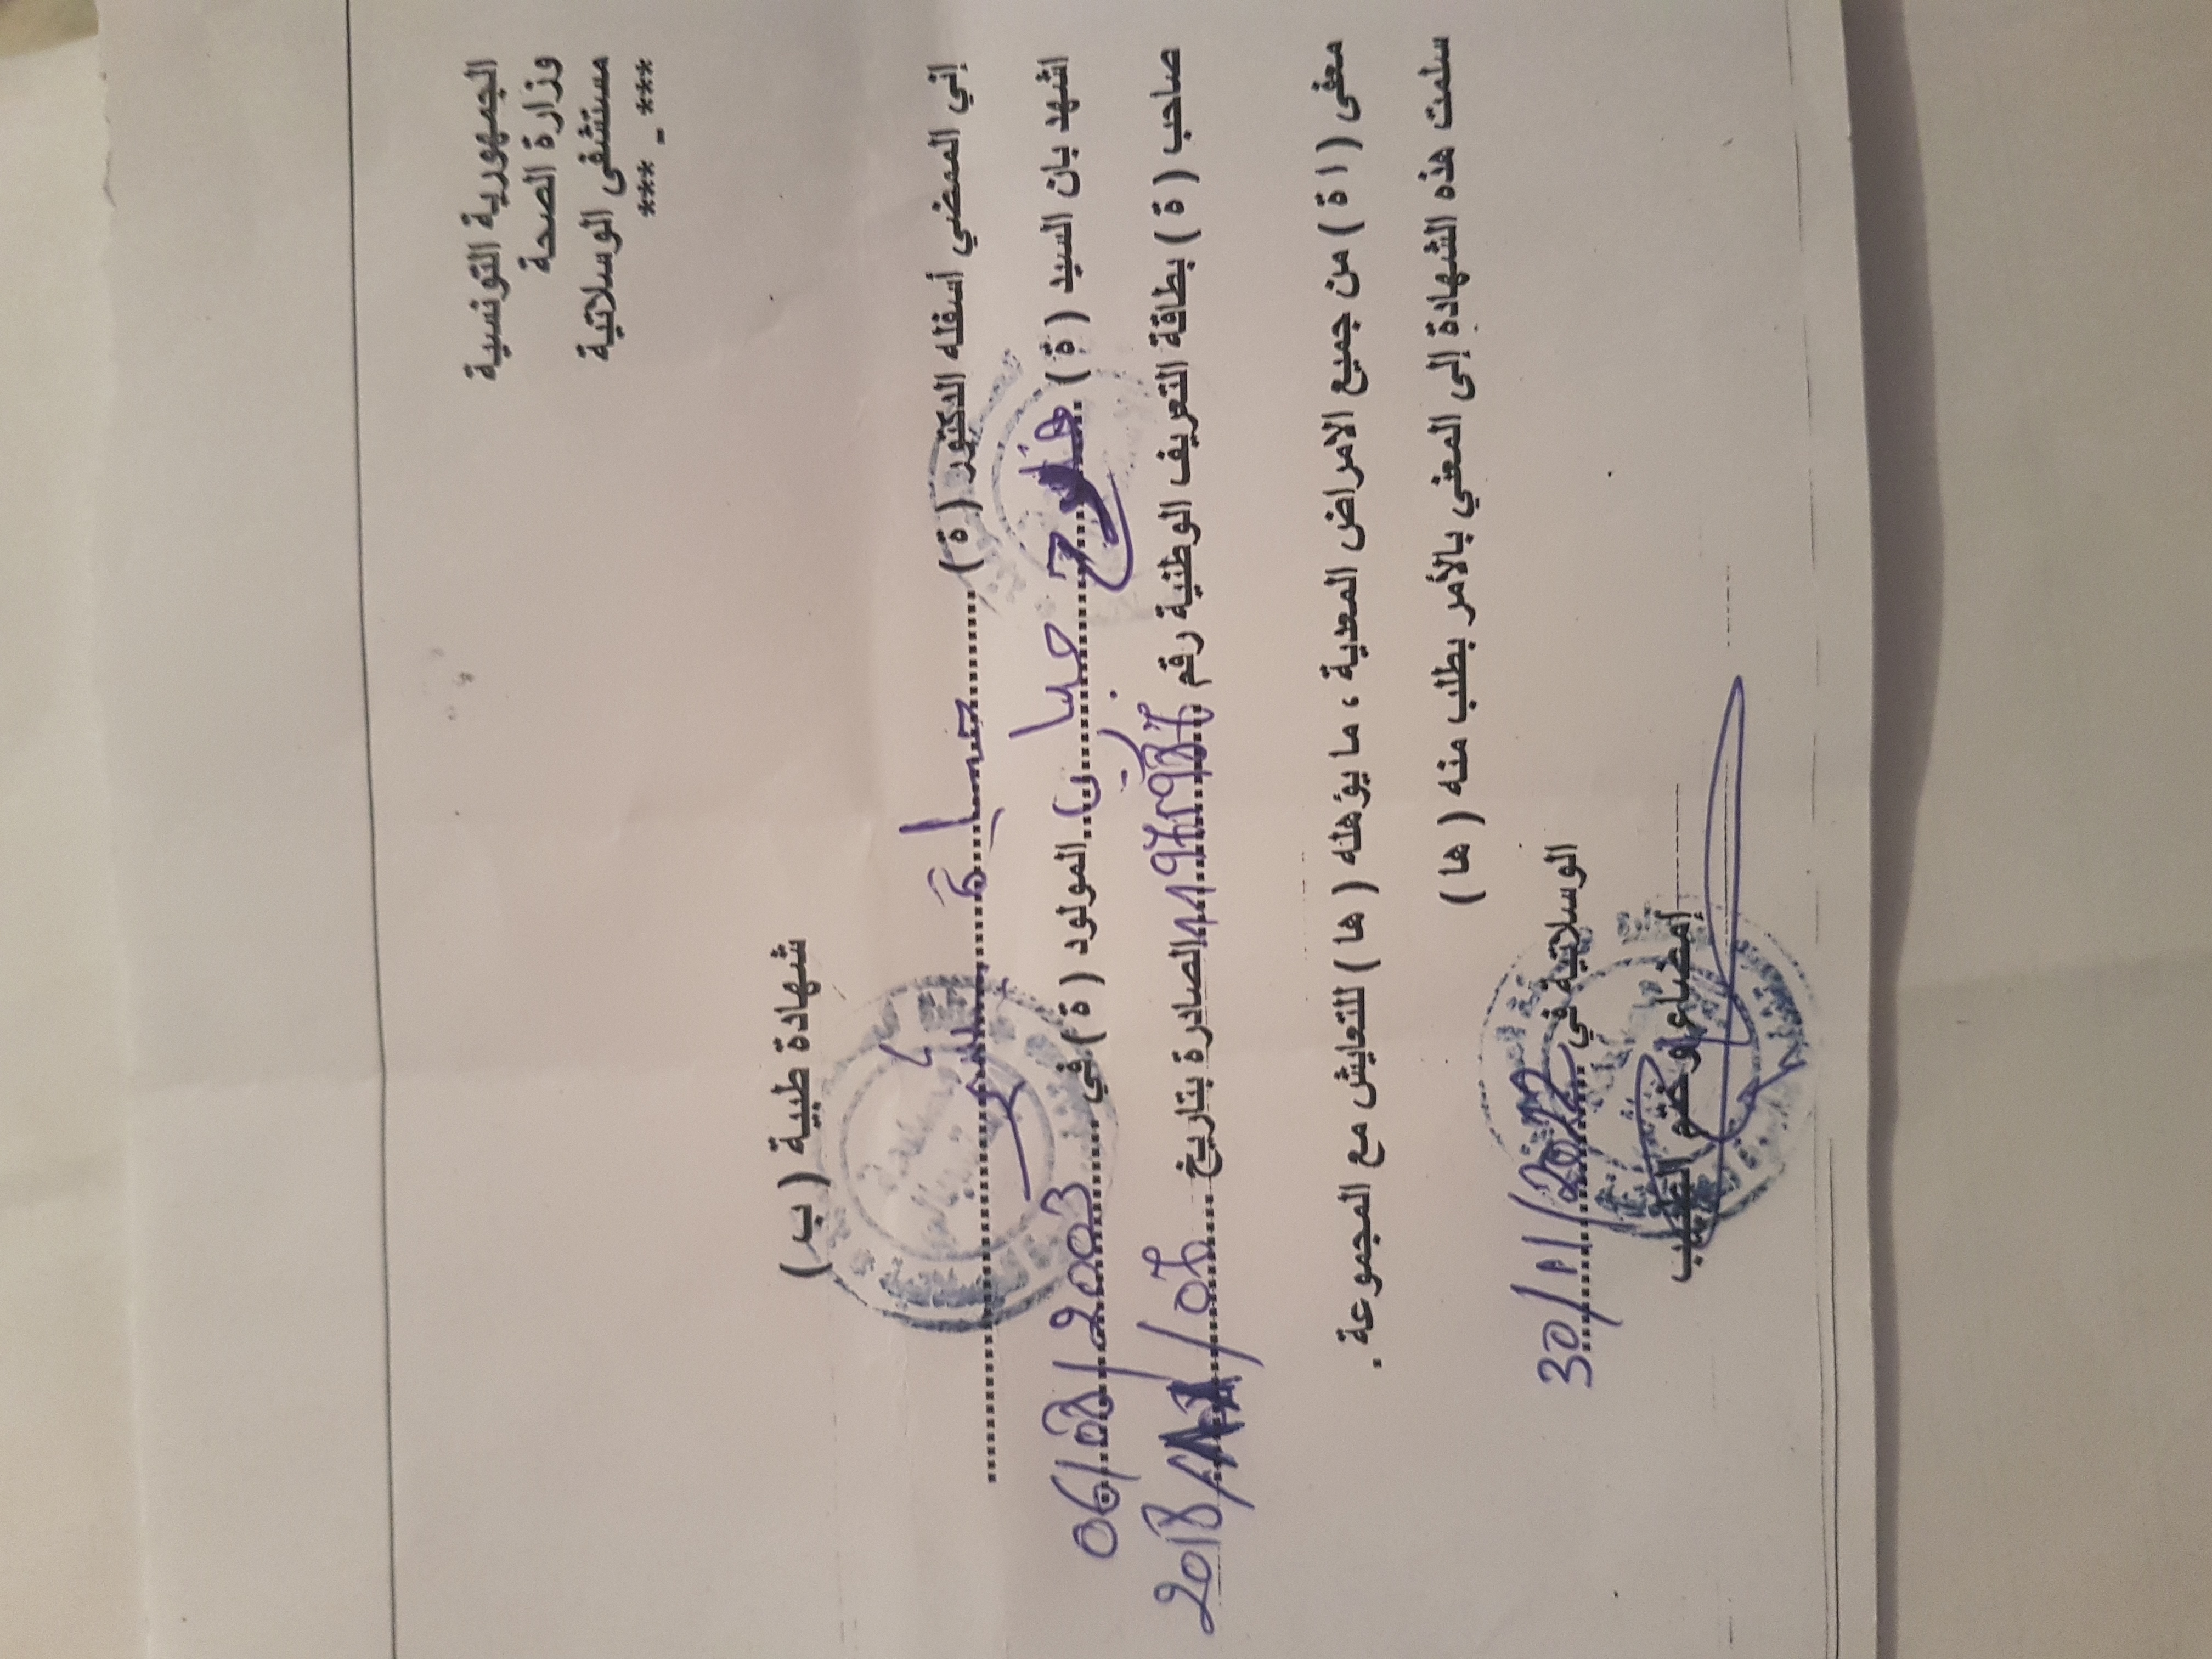 الجمهورية التونسية
وزارة الصحة
مستشفى الوسلاتية
***_***
شهادة طبية (ب.ر)
إني الممضي أسفله الدكتور (ة)
اشهد بان السيد (ة) المولود (ة) في 06/08/2003
صاحب (ة) بطاقة التعريف الوطنية رقم الصادرة بتاريخ 2018
معفى (اة) من جميع الامراض المعدية، ما يؤهله (ها) للتعايش مع المجموعة.
سلمت هذه الشهادة إلى المعني بالأمر بطلب منه (ها)
الوسلاتية في 30/11/2022
إمضاء وختم الطبيب